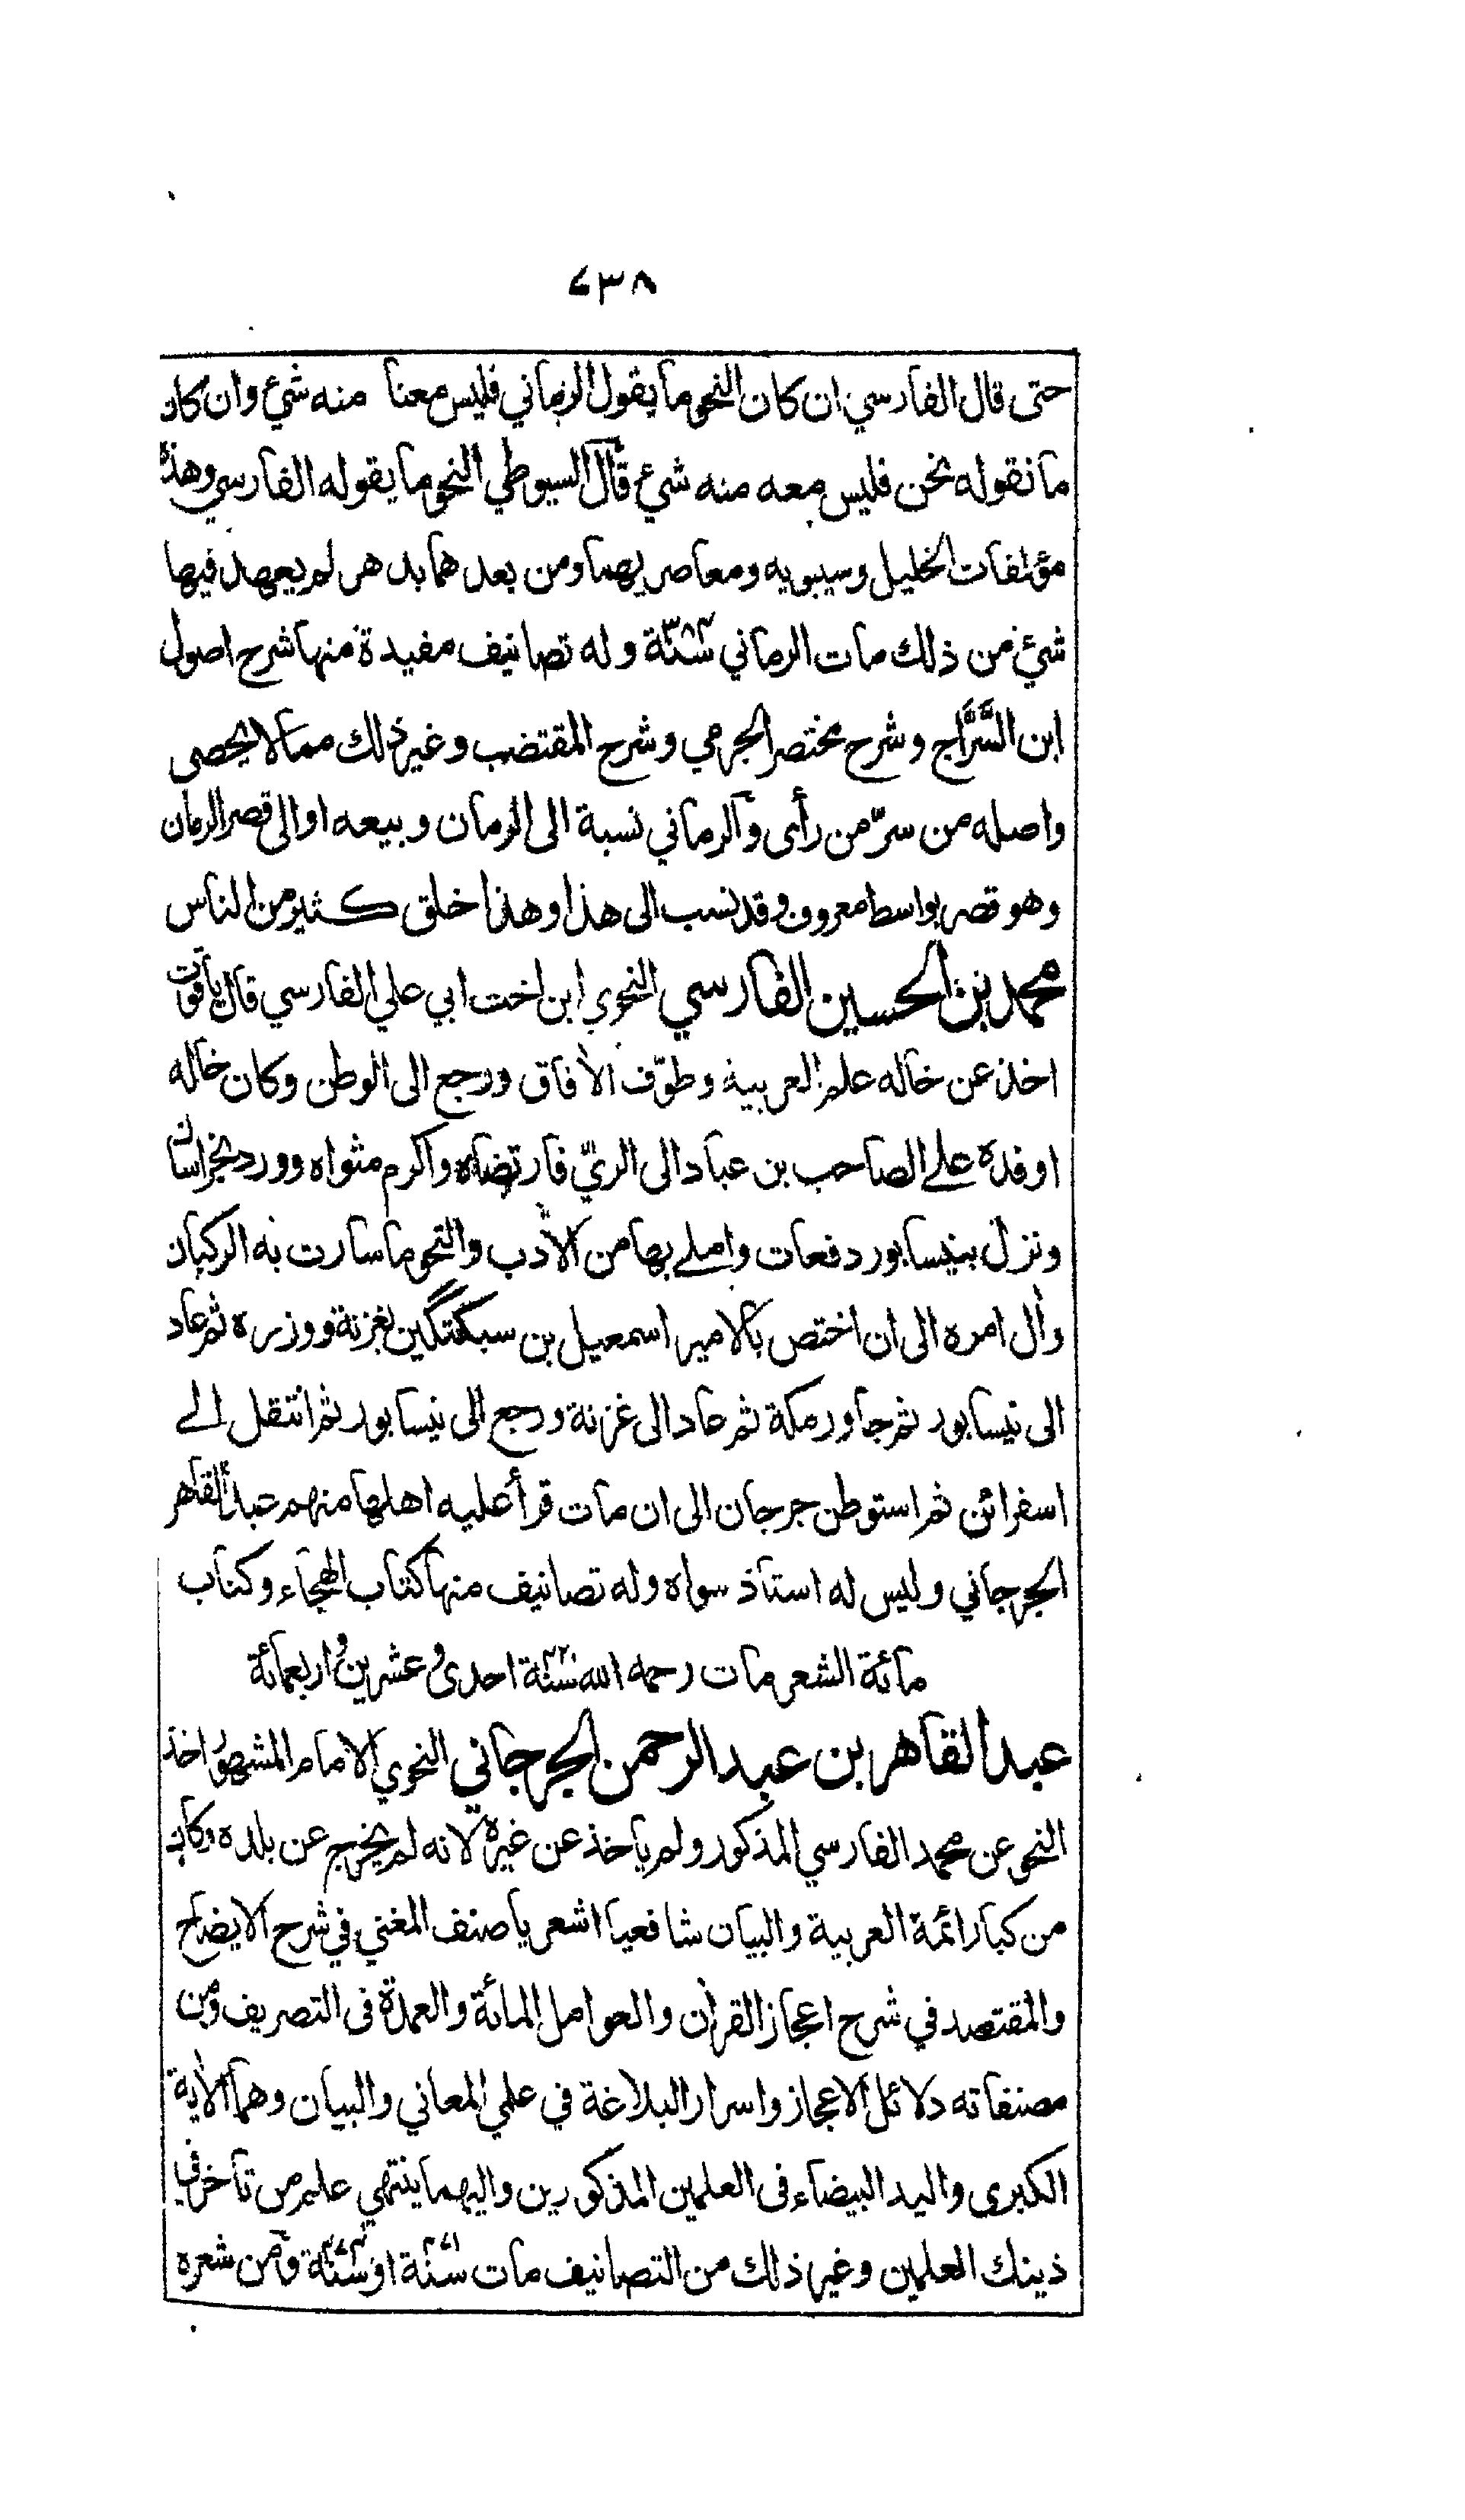 ٧٣٨
حتى قال الفارسي ان كان النحو ما يقول الرماني فليس معنا منه شيء وان كان
ما نقوله نحن فليس معه منه شيء قال السيوطي النحو ما يقوله الفارسي وهذه
مؤلفات الخليل وسيبويه ومعاصريهما ومن بعدهما بدهر لم يعهد فيها
شيء من ذلك مات الرماني سنة ٣٨٤ وله تصانيف مفيدة منها شرح اصول
ابن السَّرَّاج وشرح مختصر الجرمي وشرح المقتضب وغير ذلك مما لا يحصى
واصله من سرّ من رأى والرماني نسبة الى الرمان وبيعه او الى قصر الرمان
وهو قصر بواسط معروف وقد نسب الى هذا وهذا خلق كثير من الناس
محمد بن الحسين الفارسي النحوي ابن اخت ابي علي الفارسي قال ياقوت
اخذ عن خاله علم العربية وطوّف الآفاق ورجع الى الوطن وكان خاله
اوفده على الصاحب بن عباد الى الريّ فارتضاه واكرم مثواه وورد بخراسان
ونزل بنيسابور دفعات واملى بها من الأدب والنحو ما سارت به الركبان
وآل امره الى ان اختص بالامير اسمعيل بن سبكتگين بغزنة ووزره ثم عاد
الى نيسابور ثم جاور مكة ثم عاد الى غزنة ورجع الى نيسابور ثم انتقل الى
اسفرائن ثم استوطن جرجان الى ان مات قرأ عليه اهلها منهم عبد القاهر
الجرجاني وليس له استاذ سواه وله تصانيف منها كتاب الهجاء وكتاب
مائة الشعر مات رحمه الله سنة ٤٢١ احدى وعشرين واربعمائة
عبد القاهر بن عبد الرحمن الجرجاني النحوي الامام المشهور اخذ
النحو عن محمد الفارسي المذكور ولم يأخذ عن غيره لانه لم يخرج عن بلده وكان
من كبار ائمة العربية والبيان شافعيا اشعريا صنف المغني في شرح الايضاح
والمقتصد في شرح اعجاز القرآن والعوامل المائة والعمدة فى التصريف ومن
مصنفاته دلائل الاعجاز واسرار البلاغة في علمي المعاني والبيان وهما الآية
الكبرى واليد البيضاء فى العلمين المذكورين واليهما ينتهي علم من تأخر في
ذينك العلمين وغير ذلك من التصانيف مات سنة ٤٧١ او سنة ٤٧٤ ومن شعره